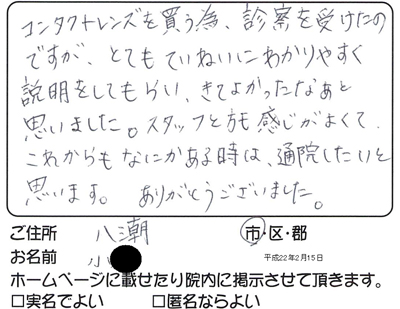 コンタクトレンズを買う為、診察を受けたの
ですが、とてもていねいにわかりやすく
説明をしてもらい、きてよかったなあと
思いました。スタッフと方も感じがよくて、
これからもなにかある時は、通院したいと
思います。 ありがとうございました。
ご住所 八潮 市・区・郡
お名前 小
平成22年2月15日
ホームページに載せたり院内に掲示させて頂きます。
□実名でよい □匿名ならよい